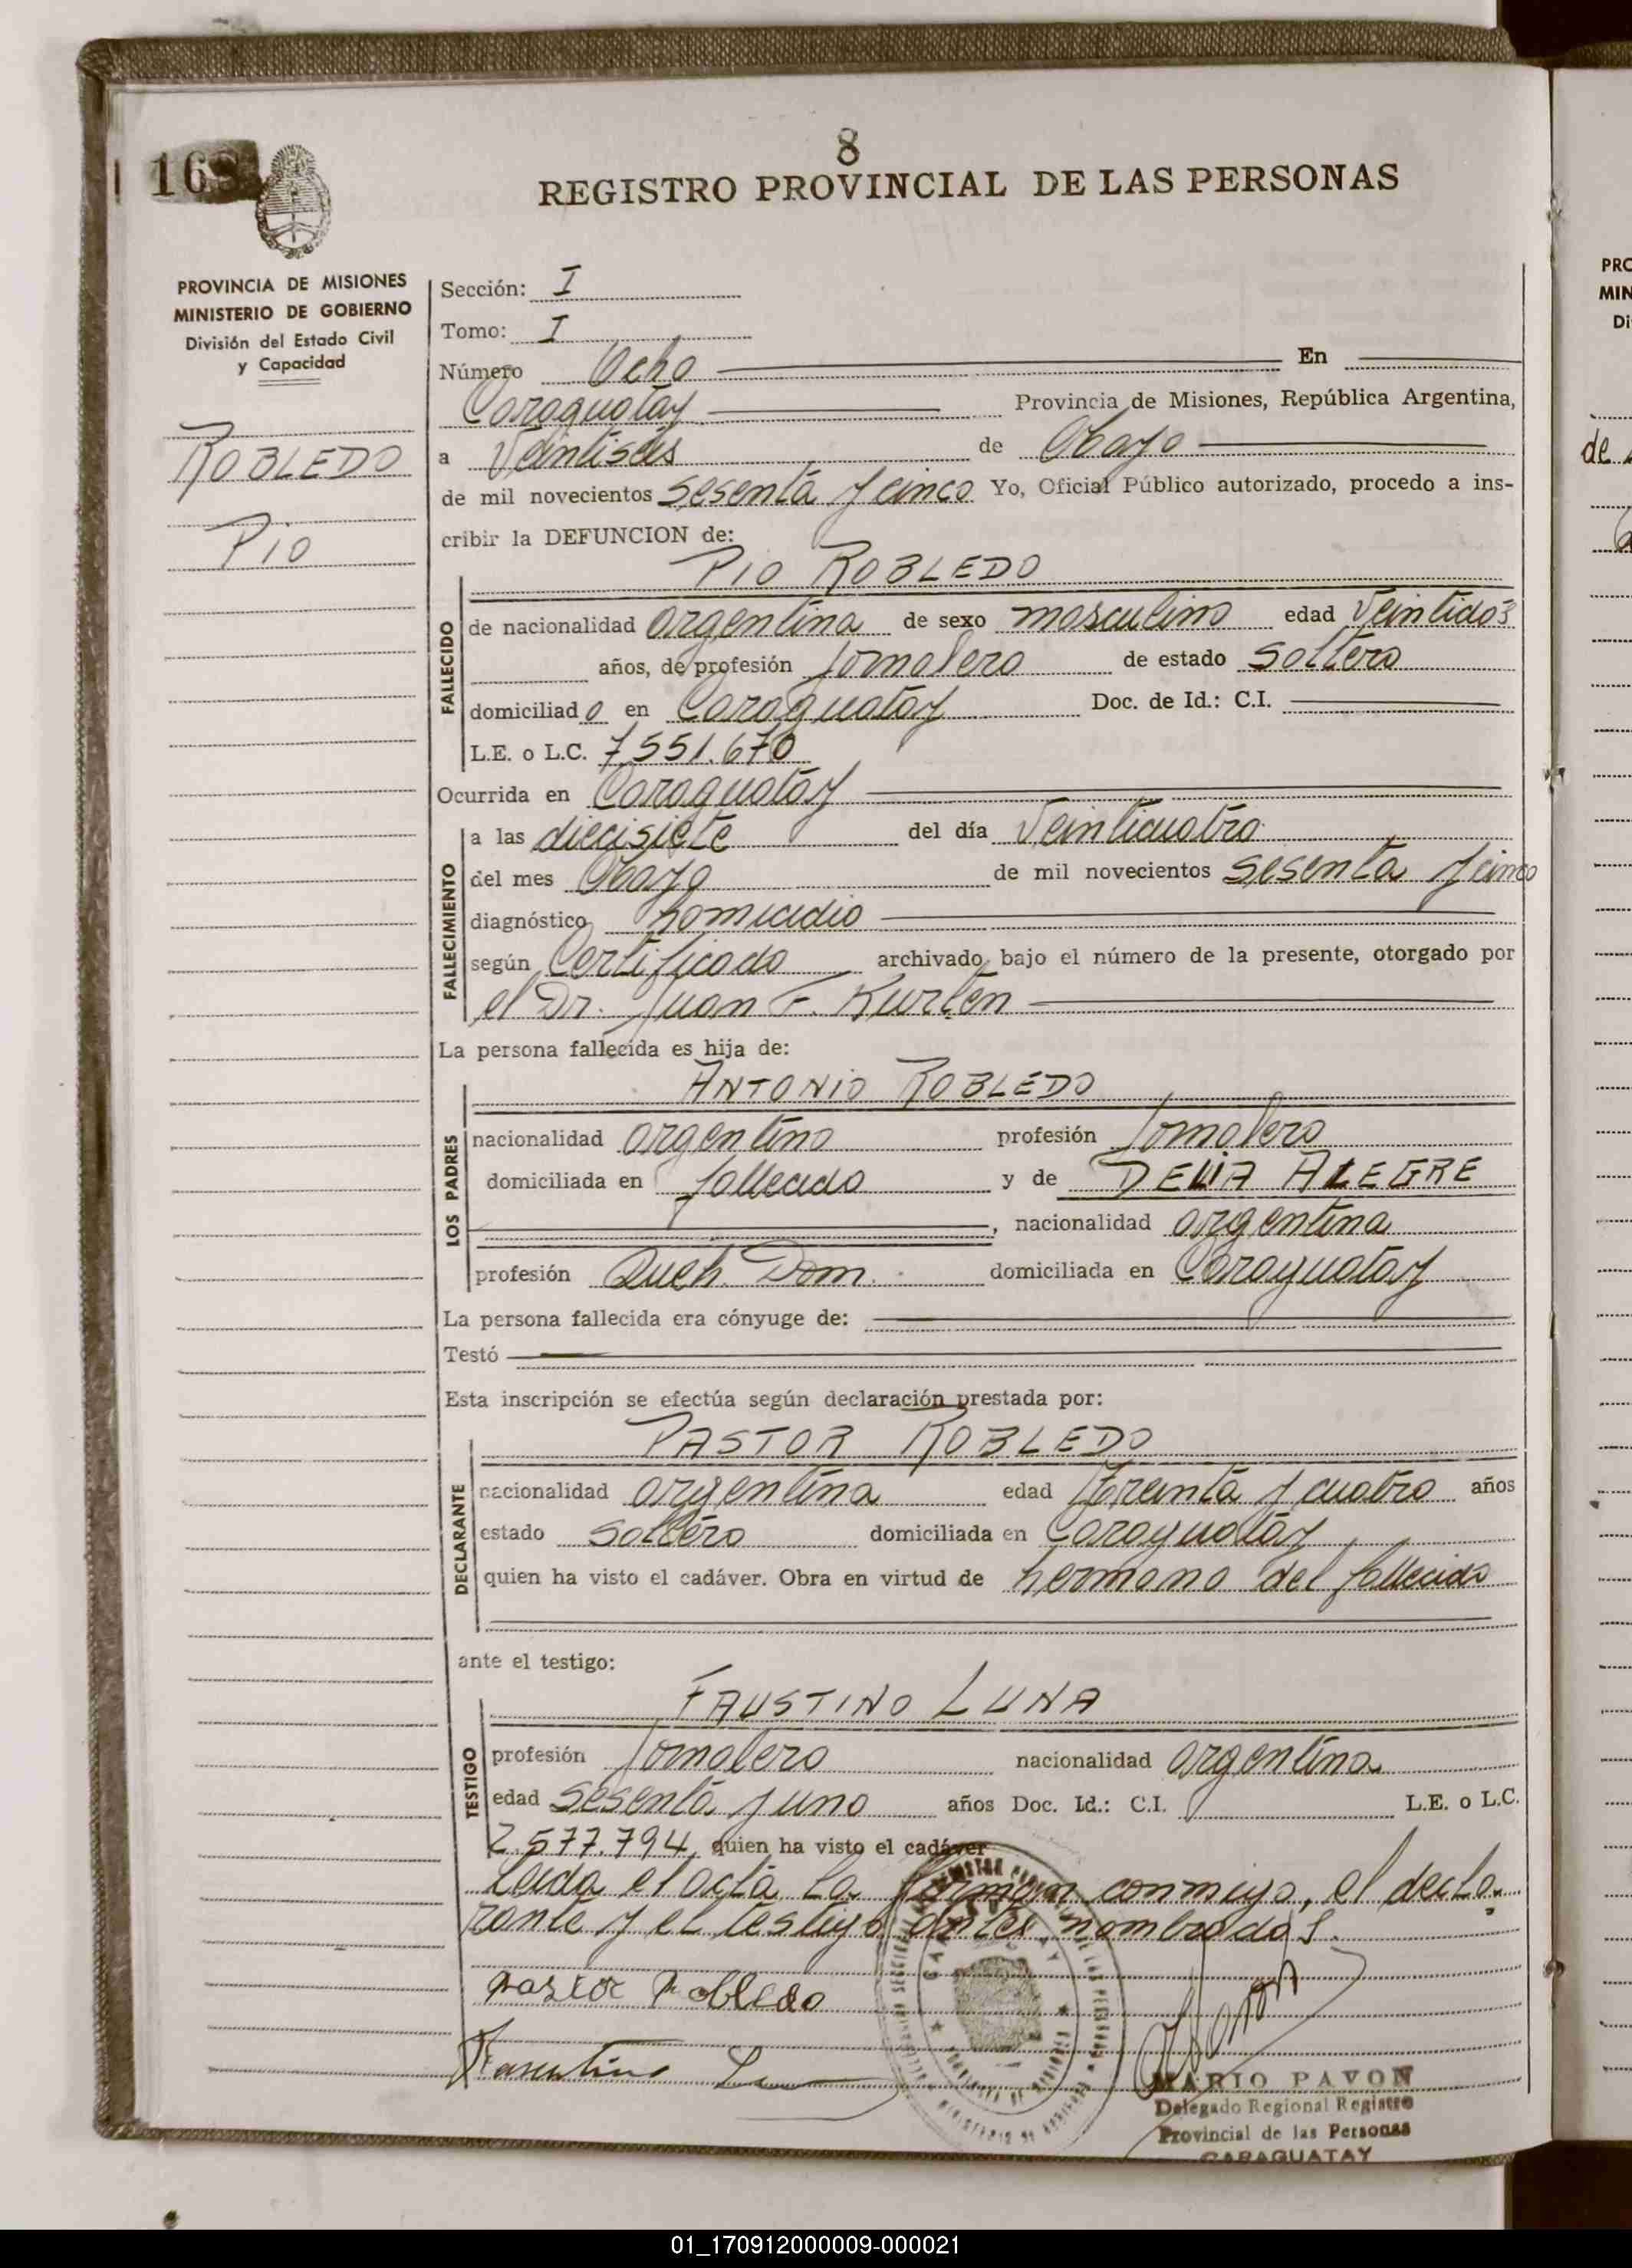 8
168
REGISTRO PROVINCIAL DE LAS PERSONAS
PROVINCIA DE MISIONES
MINISTERIO DE GOBIERNO
División del Estado Civil
y Capacidad
ROBLEDO
Pio
Sección: I
Tomo: I
Número Ocho En
Caraguatay Provincia de Misiones, República Argentina,
a Veintiseis de Mayo
de mil novecientos sesenta y cinco Yo, Oficial Público autorizado, procedo a ins-
cribir la DEFUNCION de:
Pio ROBLEDO
FALLECIDO
de nacionalidad argentina de sexo masculino edad Veintidós
años, de profesión Jornalero de estado Soltero
domiciliado en Caraguatay Doc. de Id.: C.I.
L.E. o L.C. 7.551.670
Ocurrida en Caraguatay
FALLECIMIENTO
a las diecisiete del día Veinticuatro
del mes Mayo de mil novecientos sesenta y cinco
diagnóstico homicidio
según Certificado archivado bajo el número de la presente, otorgado por
el Dr. Juan F. Kurten
La persona fallecida es hija de:
ANTONIO ROBLEDO
LOS PADRES
nacionalidad argentino profesión Jornalero
domiciliada en fallecido y de DELIA ALEGRE
, nacionalidad argentina
profesión Queh. Dom. domiciliada en Caraguatay
La persona fallecida era cónyuge de:
Testó
Esta inscripción se efectúa según declaración prestada por:
PASTOR ROBLEDO
DECLARANTE
nacionalidad argentina edad Treinta y cuatro años
estado soltero domiciliada en Caraguatay
quien ha visto el cadáver. Obra en virtud de hermano del fallecido
ante el testigo:
FAUSTINO LUNA
TESTIGO
profesión Jornalero nacionalidad argentina
edad Sesenta y uno años Doc. Id.: C.I. L.E. o L.C.
2.577.794, quien ha visto el cadáver
Leida el acta la firman conmigo, el decla
rante y el testigo antes nombrados.
Pastor Robledo
MARIO PAVON
Delegado Regional Registro
Provincial de las Personas
CARAGUATAY
PRO
MIN
Di
de
01_170912000009-000021